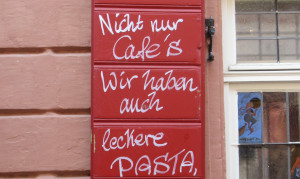 Nicht nur
Cafe's
Wir haben
auch
leckere
PASTA,